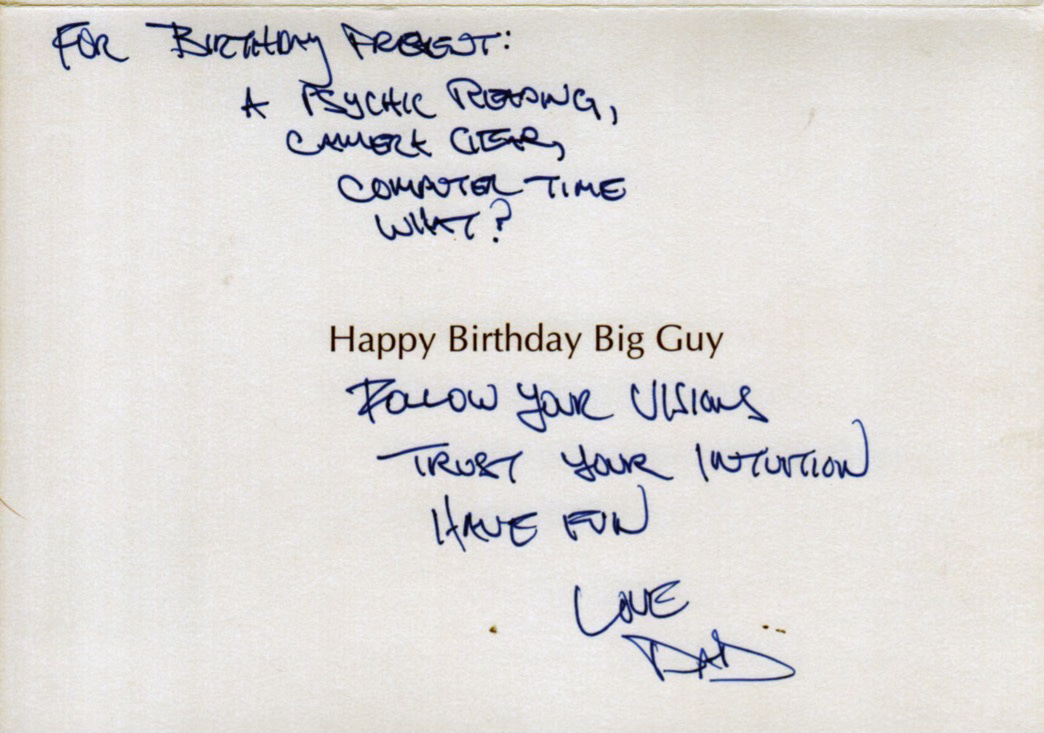 FOR BIRTHDAY PRESENT:
A PSYCHIC READING,
CAMERA GEAR,
COMPUTER TIME
WHAT?
Happy Birthday Big Guy
FOLLOW YOUR VISIONS
TRUST YOUR INTUITION
HAVE FUN
LOVE
DAD